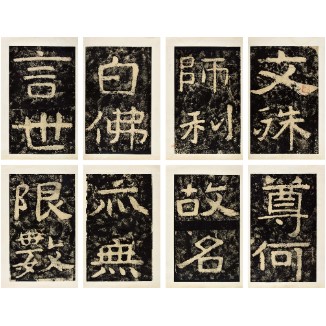 文殊
師利
白佛
言世
尊何
故名
亦無
限數